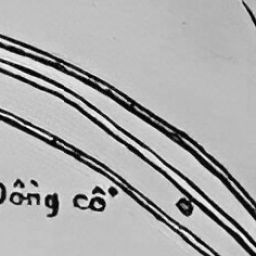 Đồng cổ